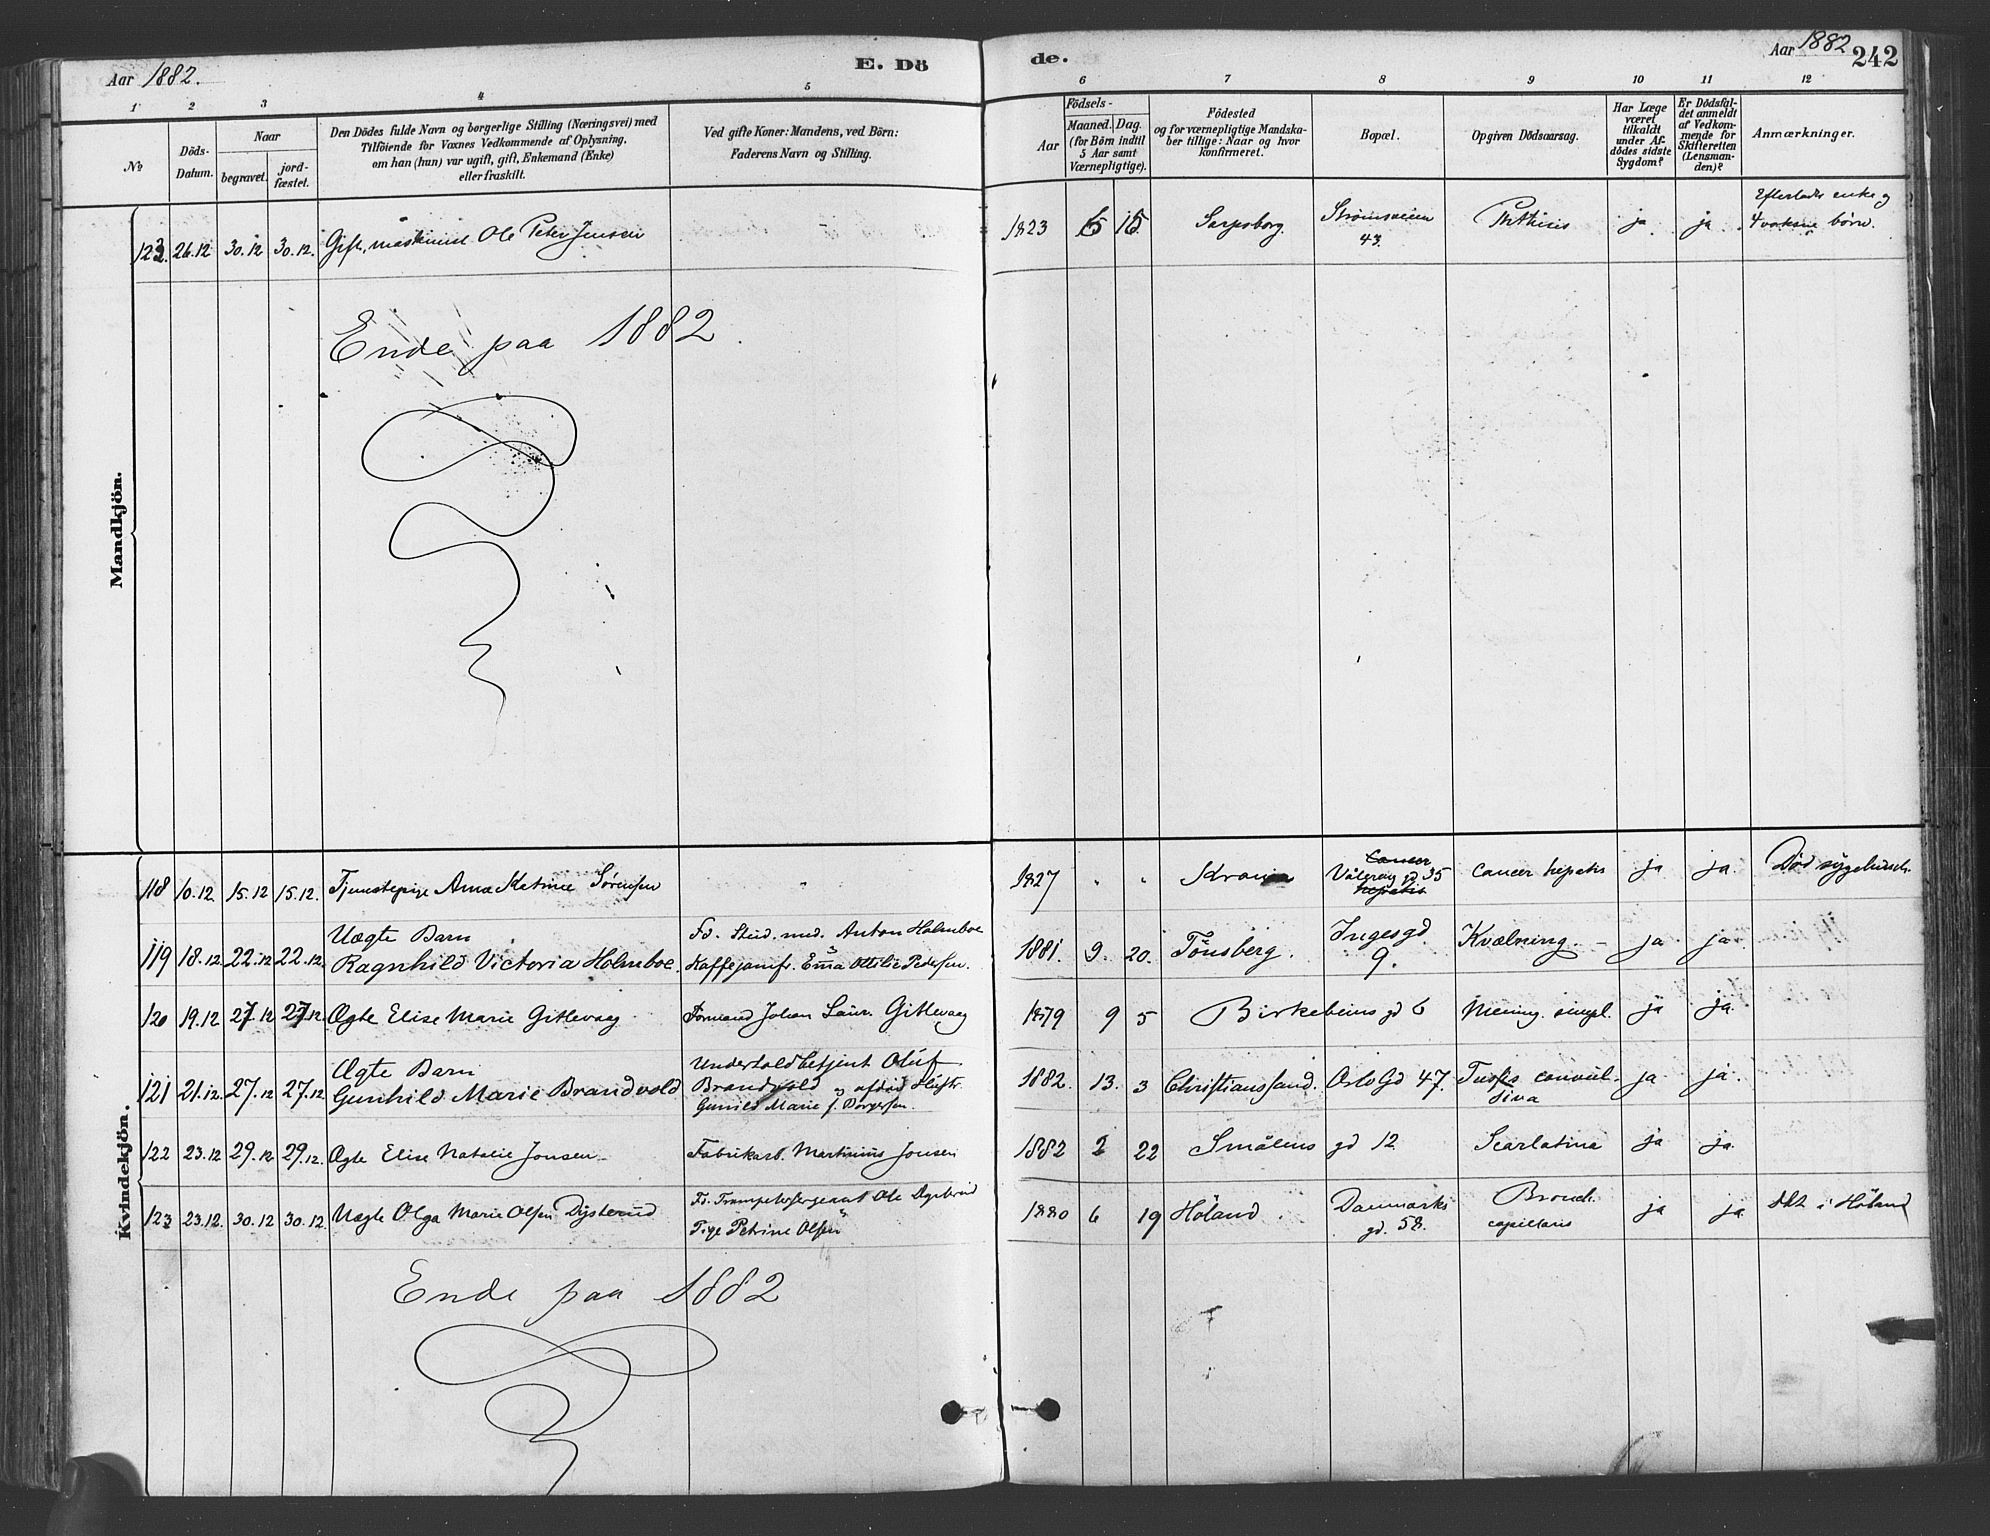 Aar 1882.
E. Dö
de.
Aar 1882
242
1 2 3 4 5 6 7 8 9 10 11 12
No
Döds-
Datum.
Naar
begravet.
jord-
fæstet.
Den Dödes fulde Navn og borgerlige Stilling (Næringsvei) med
Tilföiende for Voxnes Vedkommende af Oplysning,
om han (hun) var ugift, gift, Enkemand (Enke)
eller fraskilt.
Ved gifte Koner: Mandens, ved Börn:
Faderens Navn og Stilling.
Aar
Födsels-
Maaned. Dag.
(for Börn indtil
5 Aar samt
Værnepligtige).
Födested
og for værnepligtige Mandska-
ber tillige: Naar og hvor
konfirmeret.
Bopæl.
Opgiven Dödsaarsag.
Har Læge
været
tilkaldt
under Af-
dödes sidste
Sygdom?
Er Dödsfal-
det anmeldt
af Vedkom-
mende for
Skifteretten
(Lensman-
den)?
Anmærkninger.
Mandkjön.
122. 26.12 30.12 30.12. Gift, maskinist Ole Peter Jensen
1823 5 15 Sarpsborg. Strømsveien
43.
Phthisis ja ja
Efterlader enke og
4 voksne børn.
Ende paa 1882.
Kvindekjön.
118 10.12 15.12 15.12. Tjenestepige Anna Katrine Sørensen "
1827 " " Krania
Cancer
Vålerøg gd 35
hepatis
Cancer hepatis ja ja. Død sygehuset.
119 18.12 22.12 22.12.
Uægte Barn
Ragnhild Victoria Holmboe.
Fd. Stud. med. Anton Holmboe
Kaffejomfr. Emma Ottilie Pedersen.
1881. 9. 20. Tönsberg.
Ingesgd.
9.
Kvælning. - ja ja.
120 19.12 27.12 27.12 Ægte Elise Marie Gitlevaag
Formand Johan Laur. Gitlevaag
1879 9 5 Birkebeins gd 6 Mening. simpl. ja ja.
121 21.12. 27.12 27.12
Ægte Barn
Gunhild Marie Brandvold
Undertoldbetjent Oluf
Brandvold og afdød Hustr.
Gunild Marie f. Børgersen.
1882. 13. 3 Christianssand. Oslo Gd 47. Tussis convul-
siva
ja ja.
122 23.12 29.12 29.12. Ægte Elise Natalie Jonsen
Fabrikarb. Martinius Jonsen
1882 2 22 Smålens gd 12 Scarlatina ja ja.
123 23.12. 30.12 30.12. Uægte Olga Marie Olsen Dysterud
Fd. Trompetersergeant Ole Dysterud
Pige Petrine Olsen
1880 6 19 Höland.
Danmarks
gd. 58.
Bronch.
capillaris
ja ja. Dbt i Höland
Ende paa 1882